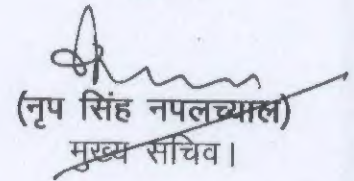 (नृप सिंह नपलच्याल)
मुख्य सचिव।